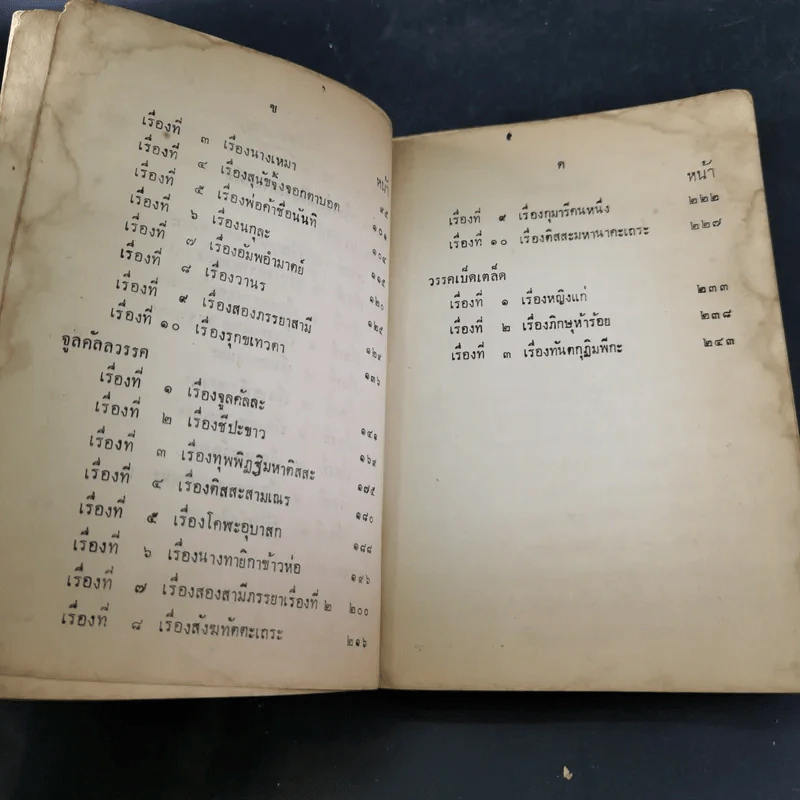 ข
หน้า
เรื่องที่ ๓ เรื่องนางเหมา ๙๕
เรื่องที่ ๔ เรื่องสุนัขจิ้งจอกตาบอด ๑๐๑
เรื่องที่ ๕ เรื่องพ่อค้าชื่อนันทิ ๑๐๔
เรื่องที่ ๖ เรื่องนกุละ ๑๑๕
เรื่องที่ ๗ เรื่องอัมพอำมาตย์ ๑๒๐
เรื่องที่ ๘ เรื่องวานร ๑๒๕
เรื่องที่ ๙ เรื่องสองภรรยาสามี ๑๒๙
เรื่องที่ ๑๐ เรื่องรุกขเทวดา ๑๓๖
จูลคัลลวรรค
เรื่องที่ ๑ เรื่องจูลคัลละ ๑๔๑
เรื่องที่ ๒ เรื่องชีปะขาว ๑๖๙
เรื่องที่ ๓ เรื่องทุพพิฏฐิมหาติสสะ ๑๗๕
เรื่องที่ ๔ เรื่องติสสะสามเณร ๑๘๐
เรื่องที่ ๕ เรื่องโคพะอุบาสก ๑๘๘
เรื่องที่ ๖ เรื่องนางทายิกาข้าวห่อ ๑๙๖
เรื่องที่ ๗ เรื่องสองสามีภรรยาเรื่องที่ ๒ ๒๐๐
เรื่องที่ ๘ เรื่องสังฆทัตตะเถระ ๒๑๖
ค
หน้า
เรื่องที่ ๙ เรื่องกุมารีคนหนึ่ง ๒๒๒
เรื่องที่ ๑๐ เรื่องติสสะมหานาคะเถระ ๒๒๗
วรรคเบ็ดเตล็ด
เรื่องที่ ๑ เรื่องหญิงแก่ ๒๓๓
เรื่องที่ ๒ เรื่องภิกษุห้าร้อย ๒๓๘
เรื่องที่ ๓ เรื่องทันตกุฏิมพีกะ ๒๔๓